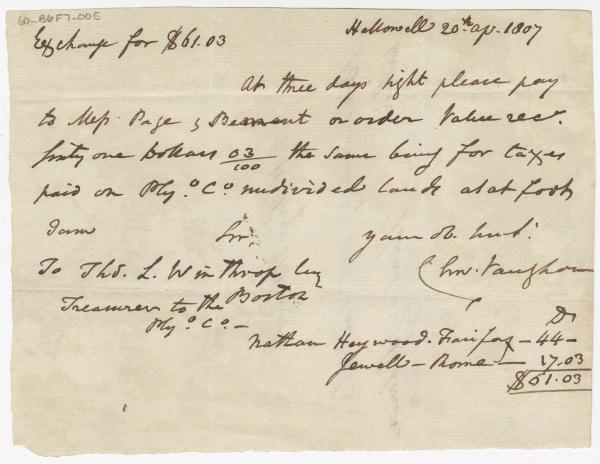 60-86F7-005
Hallowell 20th ap. 1807
Exchange for $61.03
At three days sight please pay
to Mess Page & Bement or order Value recd.
sixty one Dollars 03/100 the same being for taxes
paid on Ply.o Co. undivided lands as at foot
I am Sir your ob. Sert.
Chas. Vaughan
To Tho. L. Winthrop Esq
Boston
Treasurer to the
Ply.o Co. -
Dr
Nathan Heywood. Fairfax - 44 -
Jewell - Rome - 17.03
$61.03